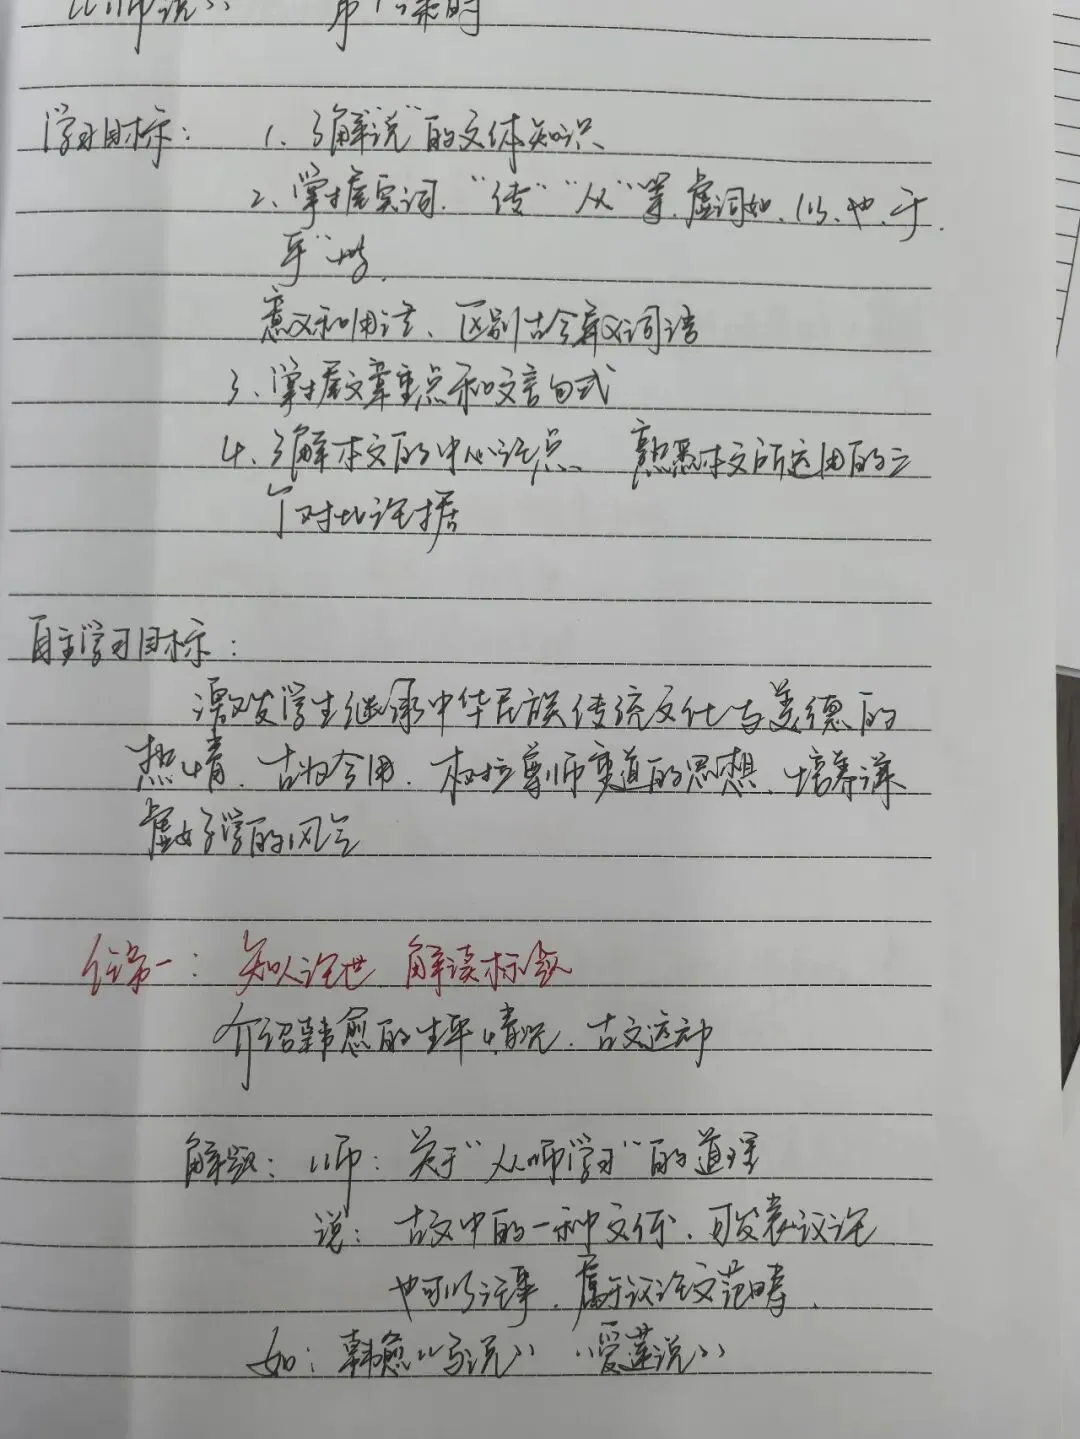 《师说》 第1课时
学习目标： 1、了解"说"的文体知识
2、掌握实词."传""从"等.虚词如.以、也、于.
乎"一些.
意义和用法、区别古今异义词语
3、掌握文章重点和文言句式
4、了解本文的中心论点、 熟悉本文所运用的三
个对比论据
自主学习目标：
激发学生继承中华民族传统文化与美德的
热情、古为今用.树立尊师重道的思想、培养谦
虚好学的风气
任务一： 知人论世 解读标题
介绍韩愈的生平情况、古文运动
解题： 师： 关于"从师学习"的道理
说： 古文中的一种文体、可发表议论
也可以记事、属于议论文范畴.
如：韩愈《马说》 《爱莲说》